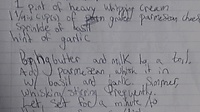 1 pint of heavy whipping cream
cups of parmesan cheese
Sprinkle of basil
Hint of garlic
butter and milk to a boil.
Add parmesan, whisk it in
w/ basil and garlic. Simmer,
whisking/stirring frequently.
Let set for a minute to